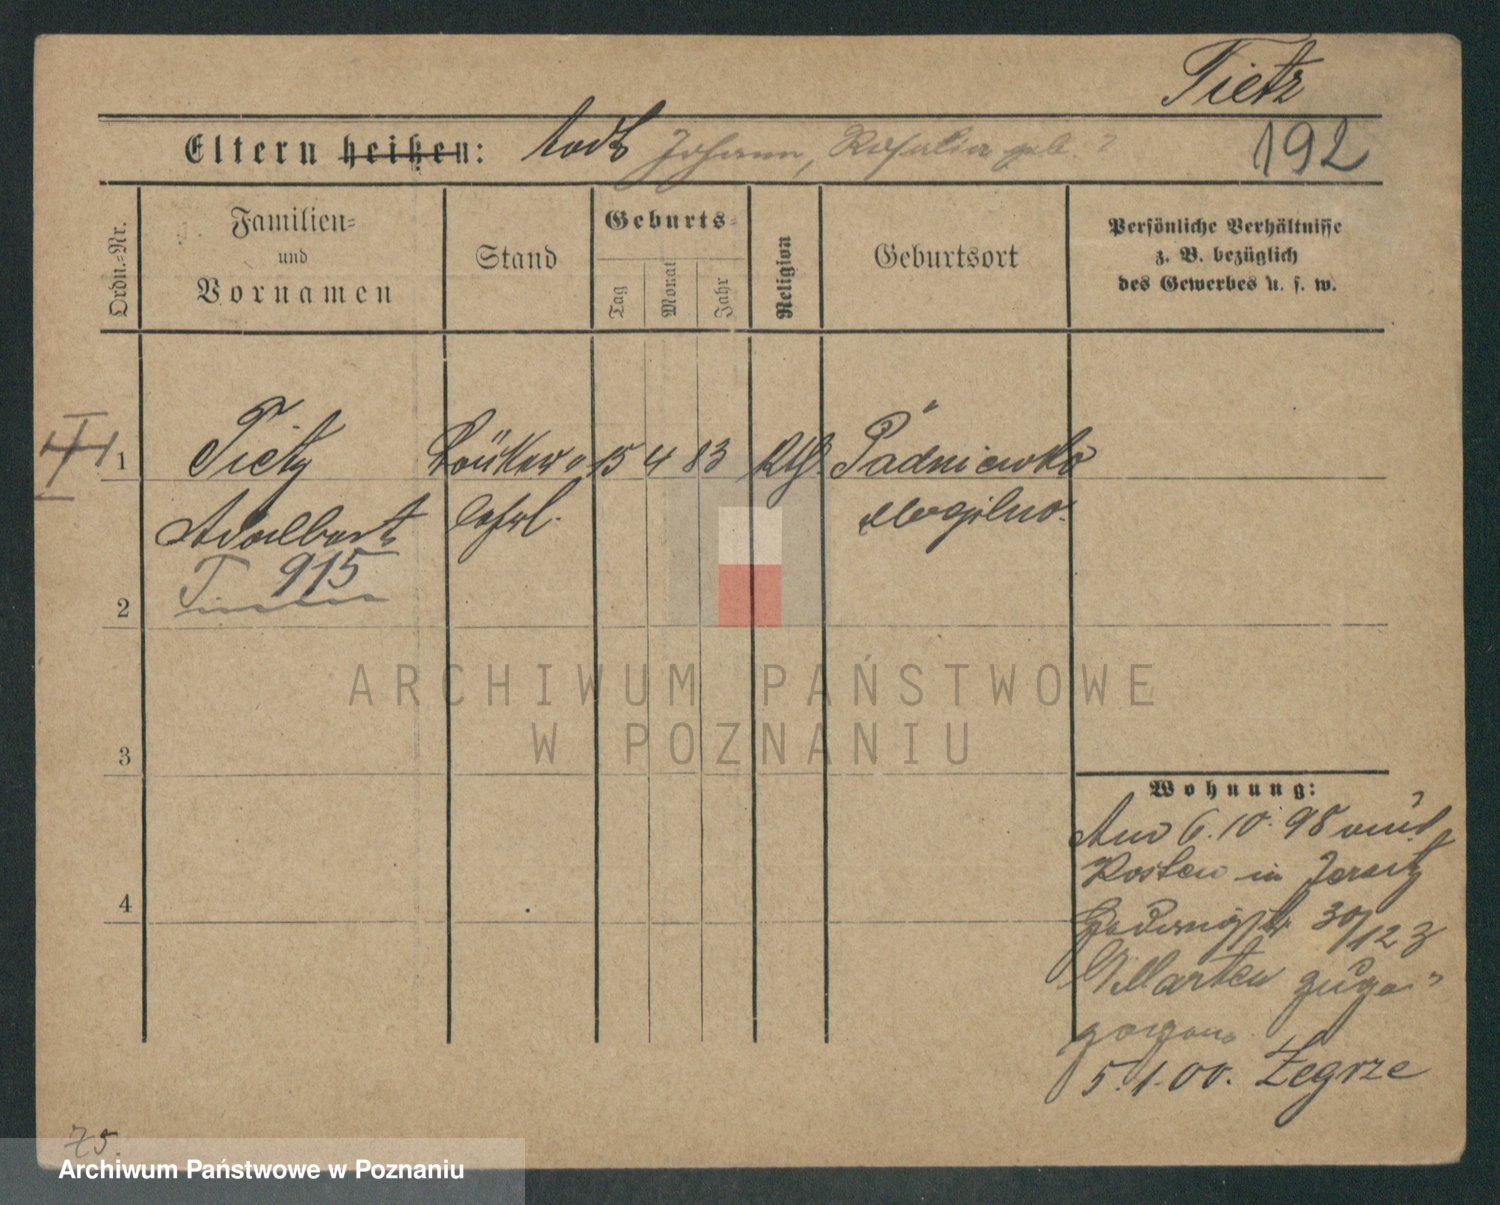 Tietz
Eltern heißen: todt Johann, Rosalia geb. ?
192
Ordn.-Nr.
Familien-
und
Vornamen
Stand
Geburts-
Tag
Monat
Jahr
Religion
Geburtsort
Persönliche Verhältnisse
z. B. bezüglich
des Gewerbes u. s. w.
1 Tietz 15 4 83 Kth Padniewko
Adalbert Lehrl. Mogilno.
T 915
2
3
4
Wohnung:
Am 6. 10. 98
Posten in Jersitz
30/12 3
Marten zuge-
zogen
5.1.00. Zegrze
75.
ARCHIWUM PAŃSTWOWE
W POZNANIU
Archiwum Państwowe w Poznaniu